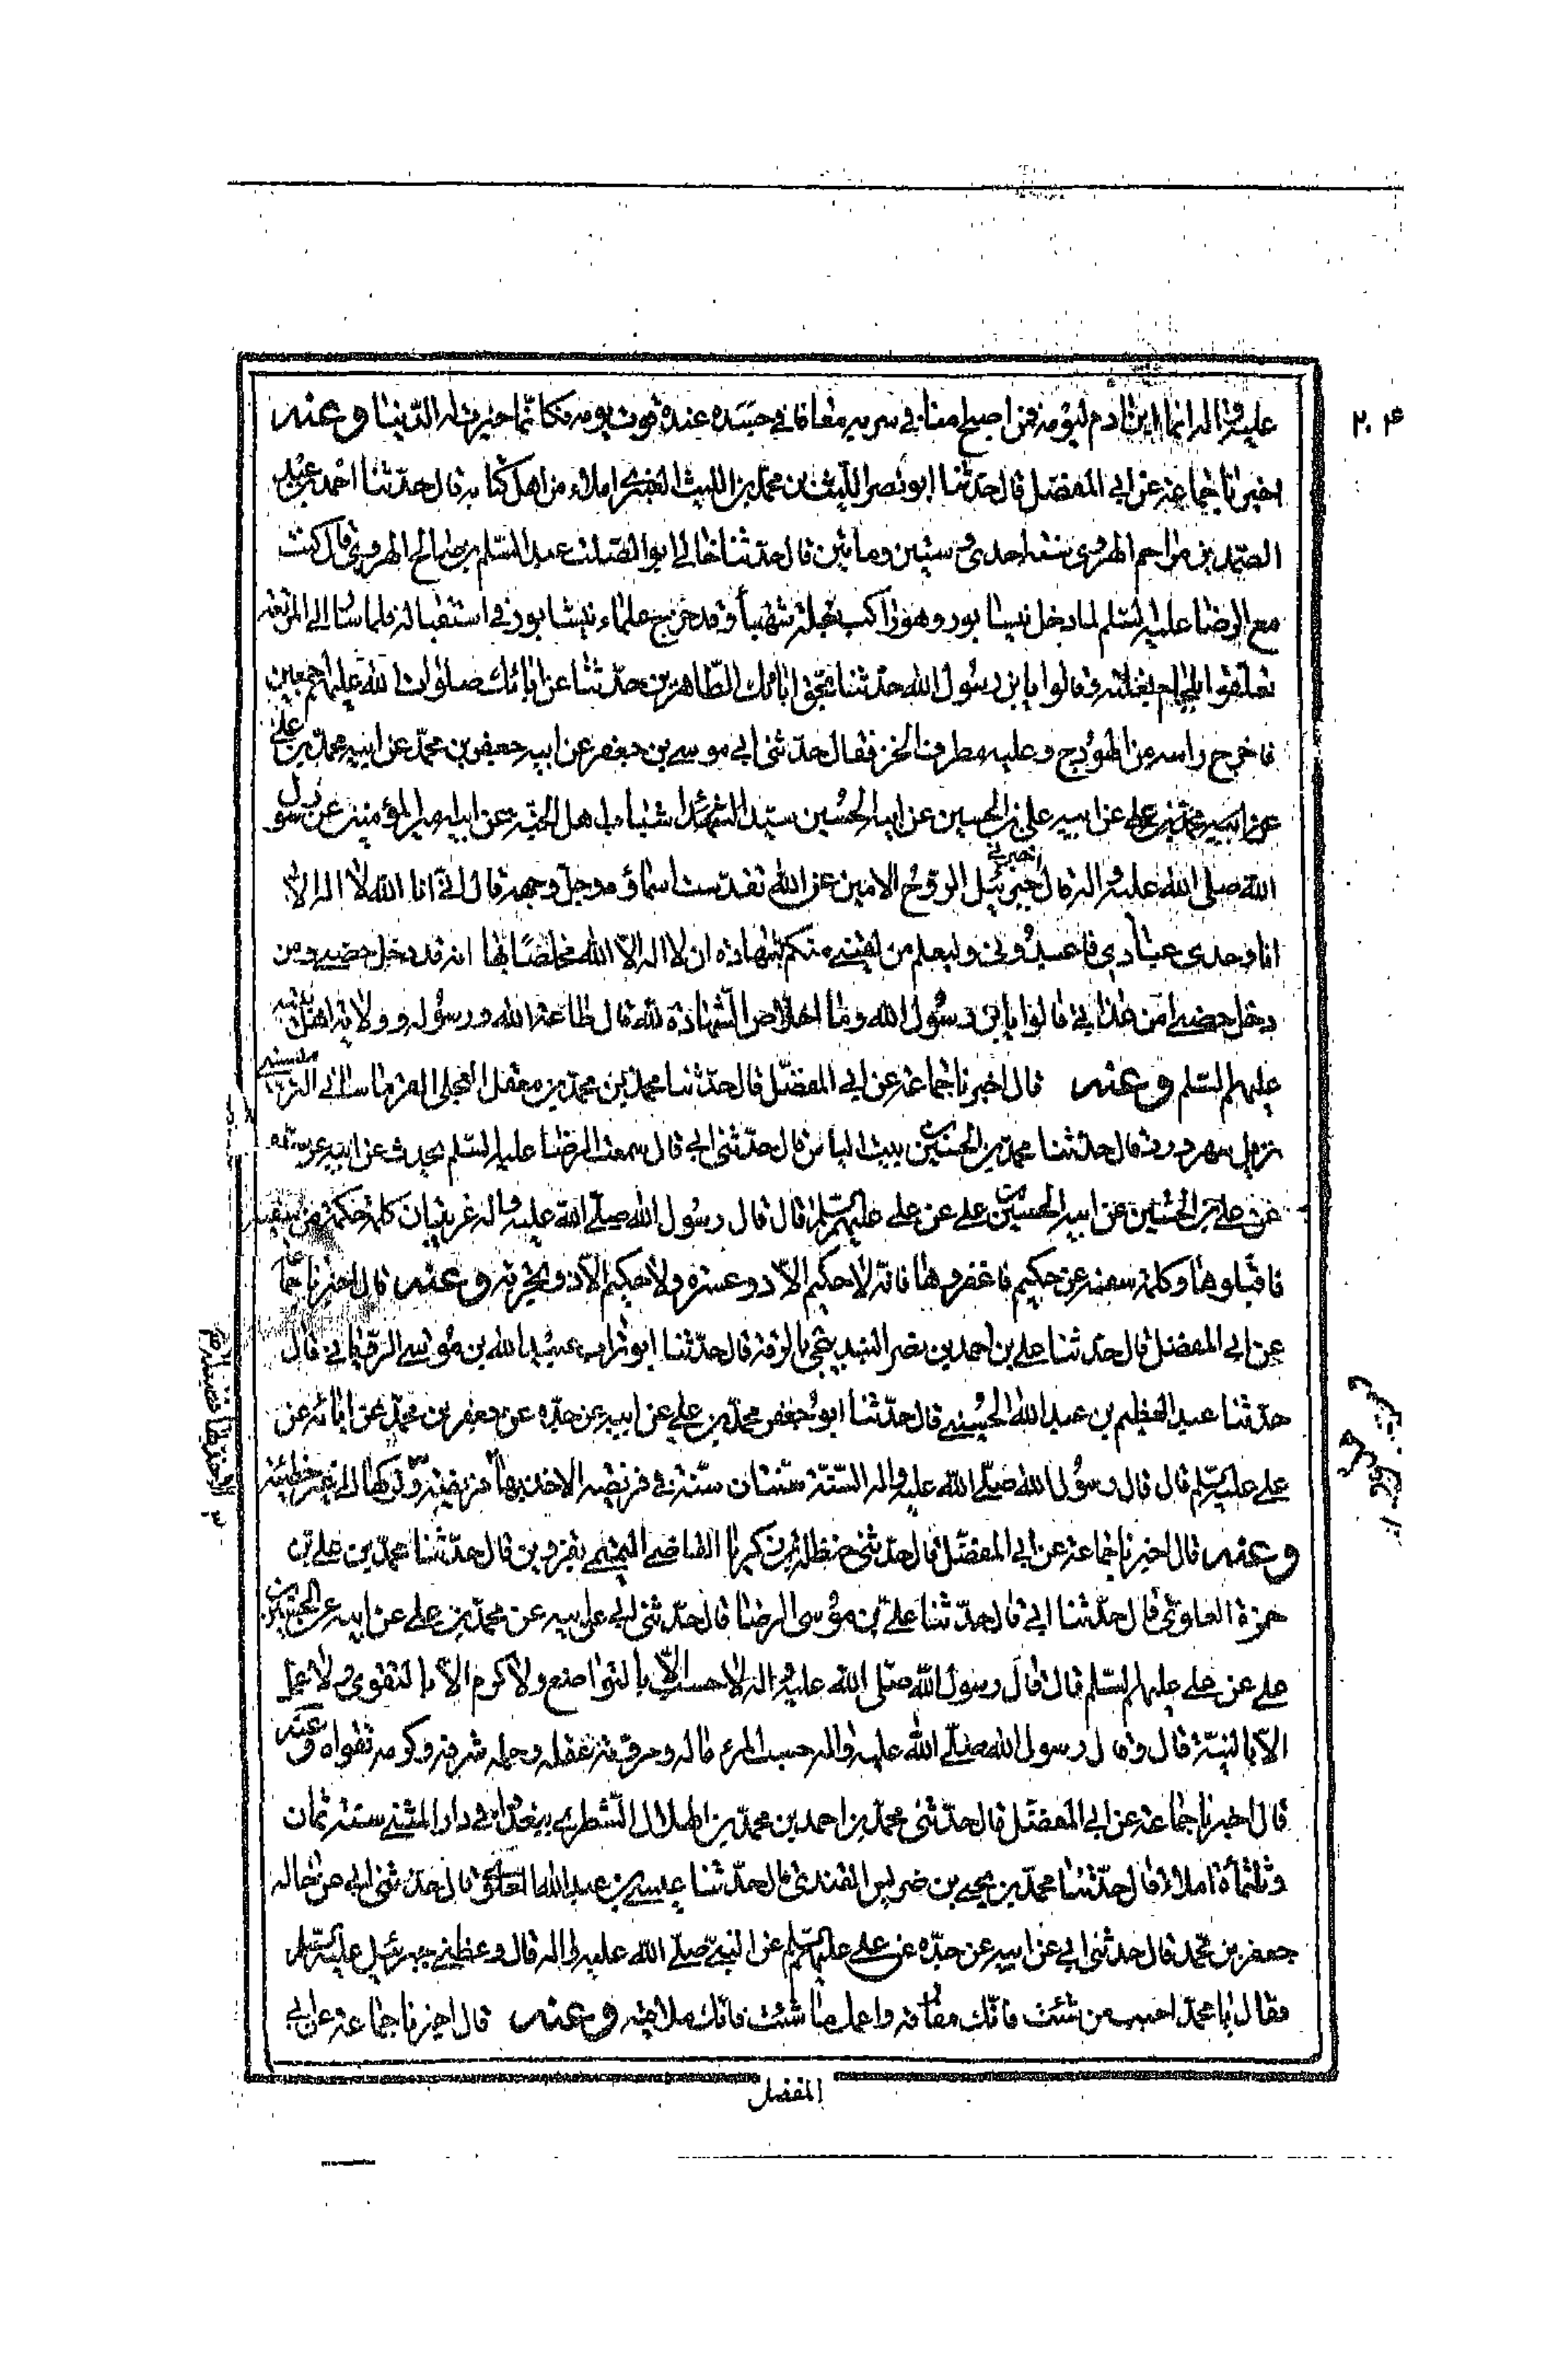 ٢٠۴
عليه واله انما ابن ادم ليومه فمن اصبح امنا في سربه معافا في جسده عنده قوت يومه فكانما حيزت له الدنيا وعنه
اخبرنا جماعة عن ابي المفضل قال حدثنا ابو نصر الليث بن محمد بن الليث العنبري املاء من اهل كتابه قال حدثنا احمد بن عبد
الصمد بن مزاحم الهروي سنة احدى وستين ومأتين قال حدثنا خالي ابو الصلت عبد السلم بن صالح الهروي قال كنت
مع الرضا عليه السلم لما دخل نيسابور وهو راكب بغلة شهبأ وقد خرج علماء نيشابور في استقباله فلما سار الى المرتعة
تعلقوا بلجام بغلته وقالوا يا بن رسول الله حدثنا بحق ابائك الطاهرين حدثنا عن ابائك صلوات الله عليهم اجمعين
فاخرج راسه من الهودج وعليه مطرف الخز فقال حدثني ابي موسى بن جعفر عن ابيه جعفر بن محمد عن ابيه محمد بن علي
عن ابيه محمد بن علي عن ابيه علي بن الحسين عن ابيه الحسين سيد الشهدا شباب اهل الجنة عن ابيه امير المؤمنين عن رسول
الله صلى الله عليه واله قال اخبرني جبرئيل الروح الامين عن الله تقدست اسماؤه وجل وجهه قال اني انا الله لا اله الا
انا وحدي عبادي فاعبدوني وليعلم من لقيني منكم بشهادة ان لا اله الا الله مخلصا بها انه قد دخل حصني ومن
دخل حصني امن عذابي قالوا يا بن رسول الله وما اخلاص الشهادة لله قال طاعة الله ورسوله وولاية اهل بيته
عليهم السلم وعنه قال اخبرنا جماعة عن ابي المفضل قال حدثنا محمد بن محمد بن معقل العجلي القرماساني
نزيل سهرورد قال حدثنا محمد بن الحسين بن بنت الياس قال حدثني ابي قال سمعت الرضا عليه السلم يحدث عن ابيه عن
عن علي بن الحسين عن ابيه الحسين بن علي عن علي عليهم السلم قال قال رسول الله صلى الله عليه واله غريبتان كلمة حكمة من سفيه
فاقبلوها وكلمة سفه من حكيم فاغفروها فانه لا حكيم الا ذو عثرة ولا حكيم الا ذو تجربة وعنه قال اخبرنا جما
عن ابي المفضل قال حدثنا علي بن احمد بن نصر البندنيجي بالرقة قال حدثنا ابو تراب عبيد الله بن موسى الروياني قال
حدثنا عبد العظيم بن عبد الله الحسني قال حدثنا ابو جعفر محمد بن علي عن ابيه عن جده عن جعفر بن محمد عن ابائه عن
علي عليه السلم قال قال رسول الله صلى الله عليه واله السنة سنتان سنة في فريضة الاخذ بها
وعنه قال اخبرنا جماعة عن ابي المفضل قال حدثني حنظلة بن زكريا القاضي التميمي بقزوين قال حدثنا محمد بن علي بن
حمزة العلوي قال حدثنا ابي قال حدثنا علي بن موسى الرضا قال حدثني ابي عن ابيه عن محمد بن علي عن ابيه عن الحسين بن
علي عن علي عليهم السلم قال قال رسول الله صلى الله عليه واله لا حسب الا بالتواضع ولا كرم الا بالتقوى ولا عمل
الا بالنية قال وقال رسول الله صلى الله عليه واله حسب المرء ماله ومروته عقله وحلمه شرفه وكرمه تقواه وعنه
قال اخبرنا جماعة عن ابي المفضل قال حدثني محمد بن احمد بن محمد بن الهلال الشطوي ببغداد في دار المثنى سنة ثمان
وثلثمأة املاءً قال حدثنا محمد بن يحيى بن ضريس الفندي قال حدثنا عيسى بن عبد الله العلوي قال حدثني ابي عن خاله
جعفر بن محمد قال حدثني ابي عن ابيه عن جده عن علي عليهم السلم عن النبي صلى الله عليه واله قال وعظني جبرئيل عليه السلم
فقال يا محمد احبب من شئت فانك مفارقه واعمل ما شئت فانك ملاقيه وعنه قال اخبرنا جماعة عن ابي
المفضل